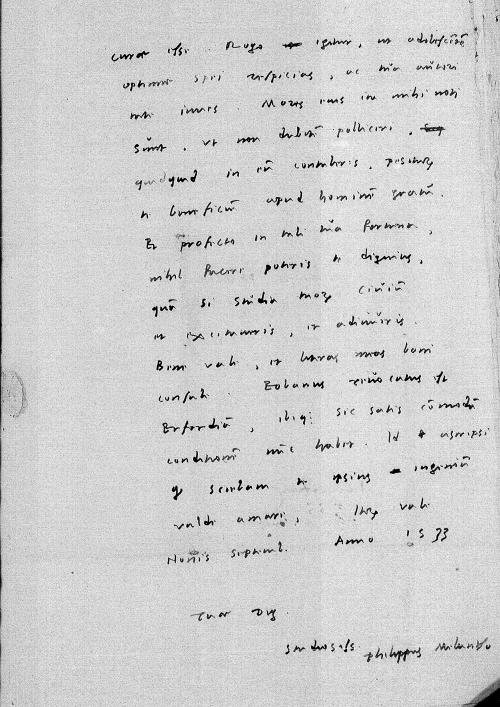 curae ipsi. Rogo igitur, ut adolescētē
optimae spei respicias, ac mea autori
tate iuves. Mores eius ita mihi noti
sūnt, ut non dubitē polliceri,
quidquid in eū contuleris, positurū
te beneficiū apud hominem gratū.
Et profecto in tali tua fortuna,
nihil facere poteris te dignius,
quā si studia moresq civiū
et excitaveris, et adiuveris.
Bene vale, et literas meas boni
consule. Eobanus revocatus est
Erfordiā, ibiq sic satis cōmodā
conditionem nūc habet. Id ascripsi
q scirem te ipsius ingeniū
valde amare. Iterū vale
Nonis Septemb. Anno 1533
Tuae Dig.
studiosiss. Philippus Melanth